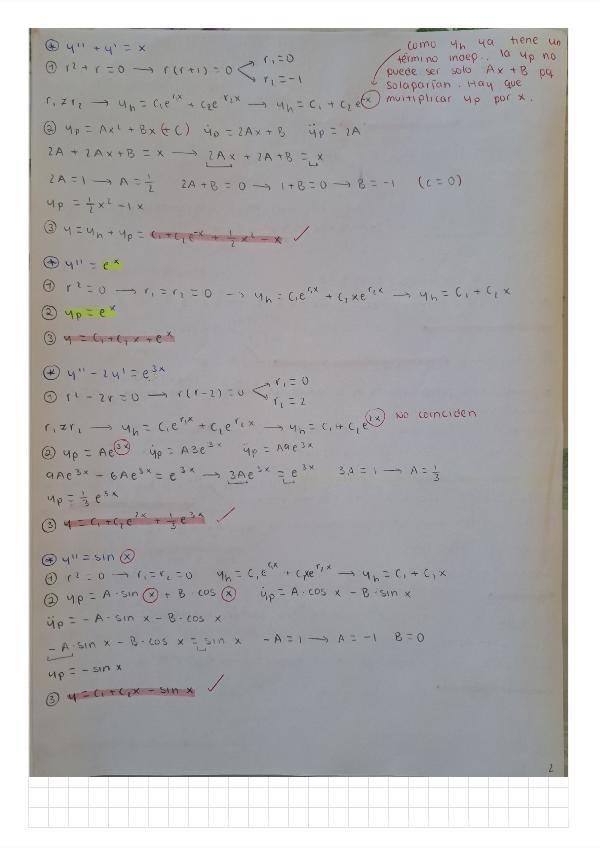 * y'' + y' = x
① r² + r = 0 → r(r+1) = 0 < r₁ = 0
r₁ = -1
como yh ya tiene un
término indep., la yp no
puede ser solo Ax + B pq
solaparían. Hay que
multiplicar yp por x.
r₁ ≠ r₂ → yh = C₁e^r₁x + C₂e^r₂x → yh = C₁ + C₂e^-x
② yp = Ax² + Bx (+ C) ẏp = 2Ax + B ÿp = 2A
2A + 2Ax + B = x → 2Ax + 2A + B = x
2A = 1 → A = 1/2 2A + B = 0 → 1 + B = 0 → B = -1 (c = 0)
yp = 1/2 x² - 1x
③ y = yh + yp = C₁ + C₂e^-x + 1/2 x² - x ✓
* y'' = e^x
① r² = 0 → r₁ = r₂ = 0 → yh = C₁e^r₁x + C₂xe^r₂x → yh = C₁ + C₂x
② yp = e^x
③ y = C₁ + C₂x + e^x
* y'' - 2y' = e^3x
① r² - 2r = 0 → r(r-2) = 0 < r₁ = 0
r₂ = 2
r₁ ≠ r₂ → yh = C₁e^r₁x + C₂e^r₂x → yh = C₁ + C₂e^2x No coinciden
② yp = Ae^3x ẏp = A3e^3x ÿp = A9e^3x
9Ae^3x - 6Ae^3x = e^3x → 3Ae^3x = e^3x 3A = 1 → A = 1/3
yp = 1/3 e^3x
③ y = C₁ + C₂e^2x + 1/3 e^3x ✓
* y'' = sin x
① r² = 0 → r₁ = r₂ = 0 yh = C₁e^r₁x + C₂xe^r₂x → yh = C₁ + C₂x
② yp = A·sin x + B·cos x ẏp = A·cos x - B·sin x
ÿp = -A·sin x - B·cos x
-A·sin x - B·cos x = sin x -A = 1 → A = -1 B = 0
yp = -sin x
③ y = C₁ + C₂x - sin x ✓
2